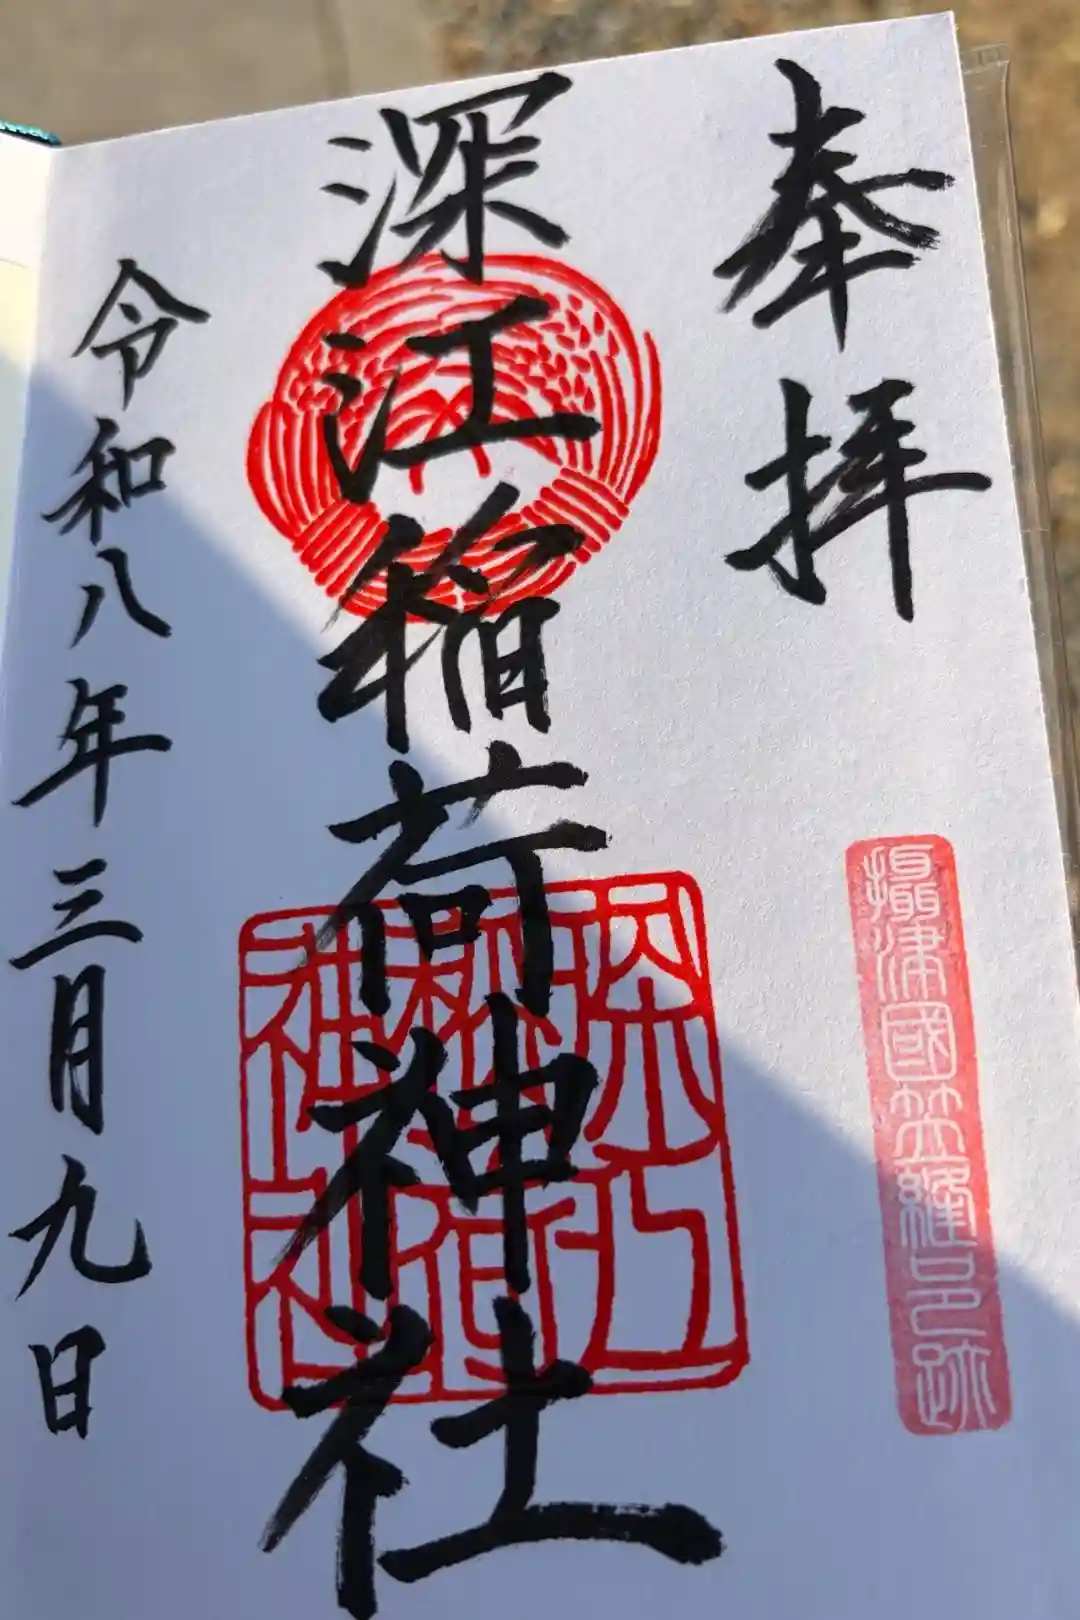 奉拝
攝津國笠縫邑跡
深江稲荷神社
深江稲荷神社
令和八年三月九日